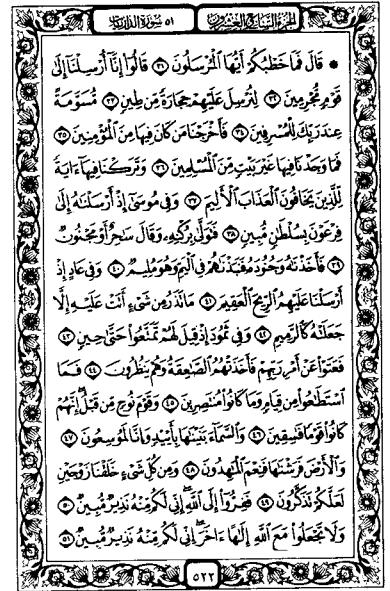 الجزء السابع والعشرون
٥١ سورة الذاريات
* قَالَ فَمَا خَطْبُكُمْ أَيُّهَا الْمُرْسَلُونَ ٣١ قَالُوا إِنَّا أُرْسِلْنَا إِلَى
قَوْمٍ مُّجْرِمِينَ ٣٢ لِنُرْسِلَ عَلَيْهِمْ حِجَارَةً مِّن طِينٍ ٣٣ مُّسَوَّمَةً
عِندَ رَبِّكَ لِلْمُسْرِفِينَ ٣٤ فَأَخْرَجْنَا مَن كَانَ فِيهَا مِنَ الْمُؤْمِنِينَ ٣٥
فَمَا وَجَدْنَا فِيهَا غَيْرَ بَيْتٍ مِّنَ الْمُسْلِمِينَ ٣٦ وَتَرَكْنَا فِيهَا ءَايَةً
لِّلَّذِينَ يَخَافُونَ الْعَذَابَ الْأَلِيمَ ٣٧ وَفِي مُوسَى إِذْ أَرْسَلْنَاهُ إِلَى
فِرْعَوْنَ بِسُلْطَانٍ مُّبِينٍ ٣٨ فَتَوَلَّى بِرُكْنِهِ وَقَالَ سَاحِرٌ أَوْ مَجْنُونٌ
٣٩ فَأَخَذْنَاهُ وَجُنُودَهُ فَنَبَذْنَاهُمْ فِي الْيَمِّ وَهُوَ مُلِيمٌ ٤٠ وَفِي عَادٍ إِذْ
أَرْسَلْنَا عَلَيْهِمُ الرِّيحَ الْعَقِيمَ ٤١ مَا تَذَرُ مِن شَيْءٍ أَتَتْ عَلَيْهِ إِلَّا
جَعَلَتْهُ كَالرَّمِيمِ ٤٢ وَفِي ثَمُودَ إِذْ قِيلَ لَهُمْ تَمَتَّعُوا حَتَّى حِينٍ ٤٣
فَعَتَوْا عَنْ أَمْرِ رَبِّهِمْ فَأَخَذَتْهُمُ الصَّاعِقَةُ وَهُمْ يَنظُرُونَ ٤٤ فَمَا
اسْتَطَاعُوا مِن قِيَامٍ وَمَا كَانُوا مُنتَصِرِينَ ٤٥ وَقَوْمَ نُوحٍ مِّن قَبْلُ إِنَّهُمْ
كَانُوا قَوْمًا فَاسِقِينَ ٤٦ وَالسَّمَاءَ بَنَيْنَاهَا بِأَيْيْدٍ وَإِنَّا لَمُوسِعُونَ ٤٧
وَالْأَرْضَ فَرَشْنَاهَا فَنِعْمَ الْمَاهِدُونَ ٤٨ وَمِن كُلِّ شَيْءٍ خَلَقْنَا زَوْجَيْنِ
لَعَلَّكُمْ تَذَكَّرُونَ ٤٩ فَفِرُّوا إِلَى اللَّهِ إِنِّي لَكُم مِّنْهُ نَذِيرٌ مُّبِينٌ ٥٠
وَلَا تَجْعَلُوا مَعَ اللَّهِ إِلَهًا ءَاخَرَ إِنِّي لَكُم مِّنْهُ نَذِيرٌ مُّبِينٌ ٥١
٥٢٢